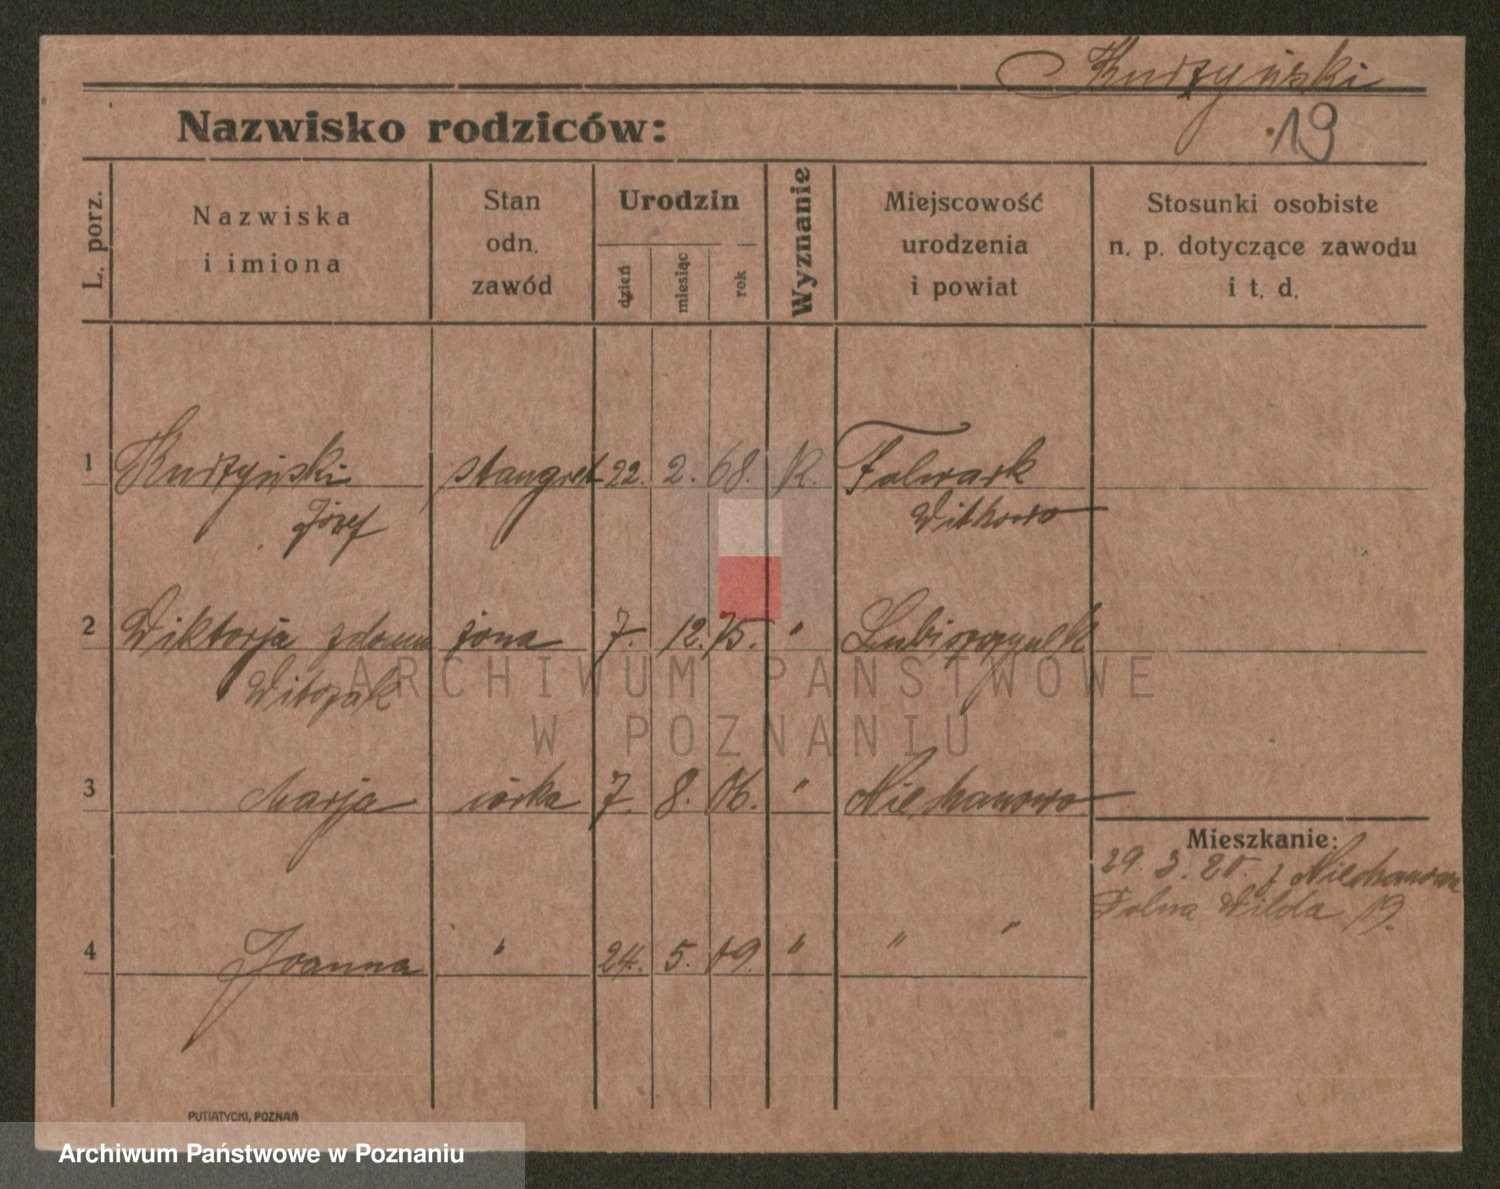 Kurzyński
Nazwisko rodziców:
19
L. porz.
Nazwiska
i imiona
Stan
odn.
zawód
Urodzin
dzień
miesiąc
rok
Wyznanie
Miejscowość
urodzenia
i powiat
Stosunki osobiste
n. p. dotyczące zawodu
i t. d.
1 Kurzyński stangret 22. 2. 68. K. Folwark
Józef Witkowo
2 Wiktorja z domu żona 7. 12. 75. "
Witczak
3 Marja córka 7. 8. 06. " Niechanowo
Mieszkanie:
29. 3. 20. z Niechanowa
Polna Wilda 19.
4 Joanna " 24. 5. 09. " " "
PUTIATYCKI, POZNAŃ
ARCHIWUM PAŃSTWOWE
W POZNANIU
Archiwum Państwowe w Poznaniu